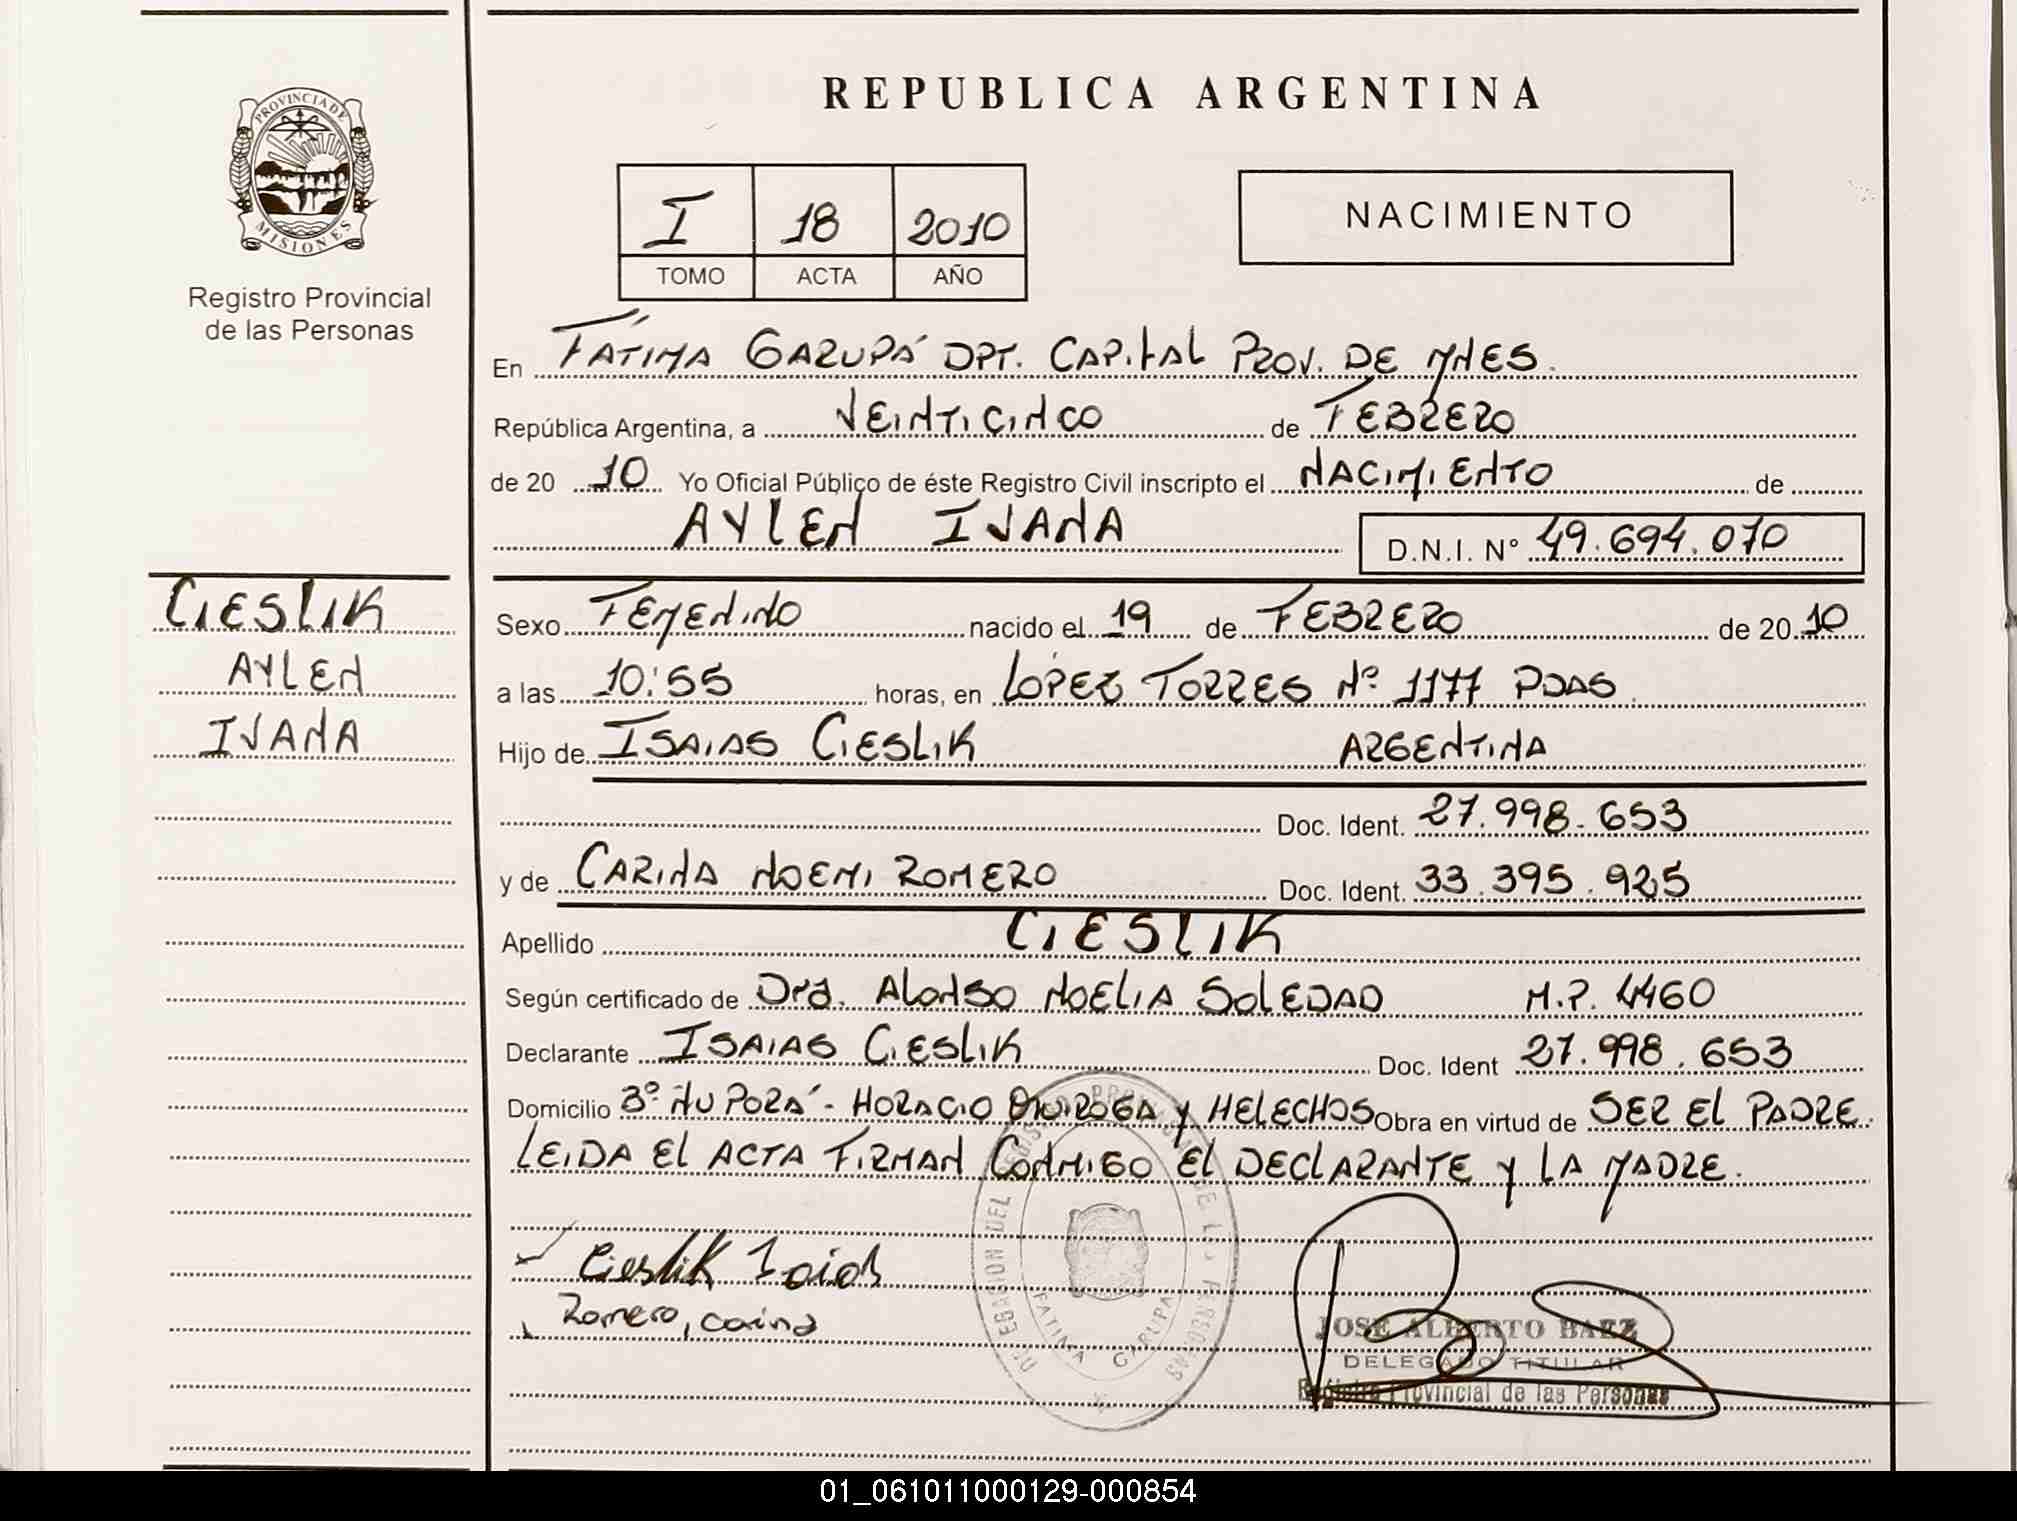 REPUBLICA ARGENTINA
PROVINCIA DE
MISIONES
Registro Provincial
de las Personas
I 18 2010
TOMO ACTA AÑO
NACIMIENTO
En FÁTIMA GARUPÁ DPT. CAPITAL PROV. DE MNES.
República Argentina, a VEINTICINCO de FEBRERO
de 20 10 Yo Oficial Público de éste Registro Civil inscripto el NACIMIENTO de
AYLEN IVANA D.N.I. N° 49.694.070
CIESLIK
AYLEN
IVANA
Sexo FEMENINO nacido el 19 de FEBRERO de 20 10
a las 10:55 horas, en LÓPEZ TORRES Nº 1177 PDAS.
Hijo de ISAIAS CIESLIK ARGENTINA
Doc. Ident. 27.998.653
y de CARINA NOEMI ROMERO Doc. Ident. 33.395.925
Apellido CIESLIK
Según certificado de Dra. ALONSO NOELIA SOLEDAD M.P. 4460
Declarante ISAIAS CIESLIK Doc. Ident 27.998.653
Domicilio Bº ÑU PORÁ - HORACIO QUIROGA Y HELECHOS Obra en virtud de SER EL PADRE.
LEIDA EL ACTA FIRMAN CONMIGO EL DECLARANTE Y LA MADRE.
Cieslik Isaias
Romero, carina
DELEGACION DEL REGISTRO PROVINCIAL DE LAS PERSONAS
FATIMA GARUPA
JOSE ALBERTO BAEZ
DELEGADO TITULAR
Registro Provincial de las Personas
01_061011000129-000854